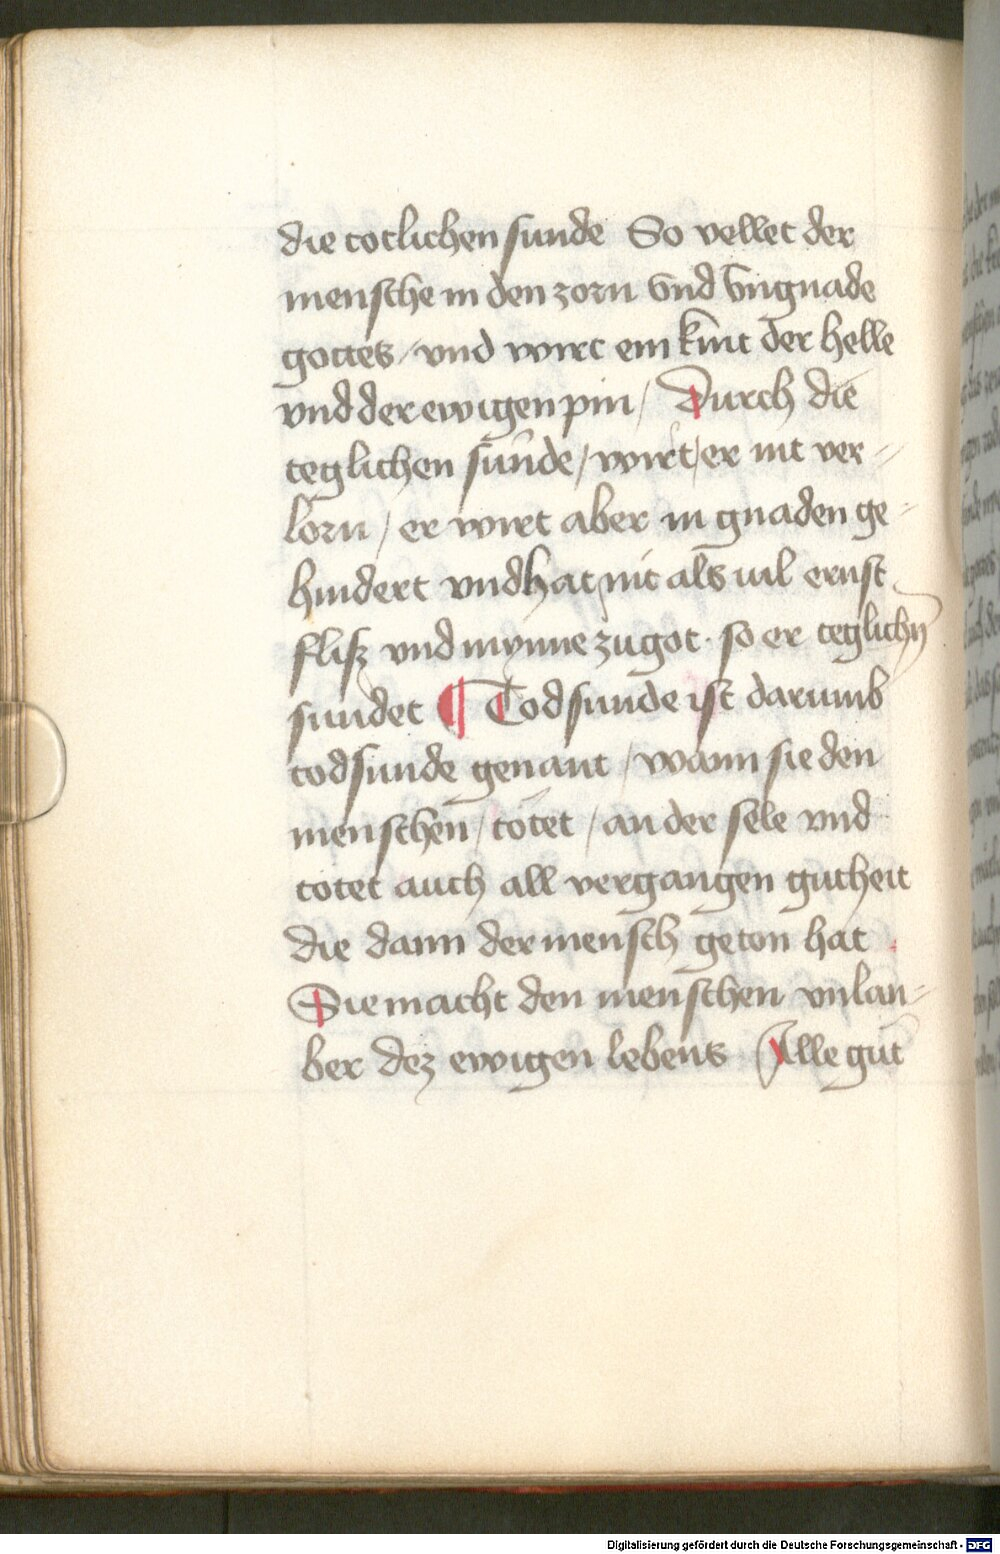 die totlichen sunde So vellet der
mensche in den zorn vnd vngnade
gottes / vnd wirt ein kint der helle
vnd der ewigen pin / Durch die
teglichen sunde / wirt / er nit ver-
lorn / er wirt aber in gnaden ge-
hindert vnd hat nit als uil ernst
flisz vnd mynne zu got · so er teglichn̄
sundet ¶ Todsunde ist darumb
todsunde genant / wann sie den
menschen / totet / an der sele vnd
totet auch all vergangen gutheit
die dann der mensch geton hat
Sie macht den menschen vnlau-
ber dez ewigen lebens Alle gut
Digitalisierung gefördert durch die Deutsche Forschungsgemeinschaft - DFG